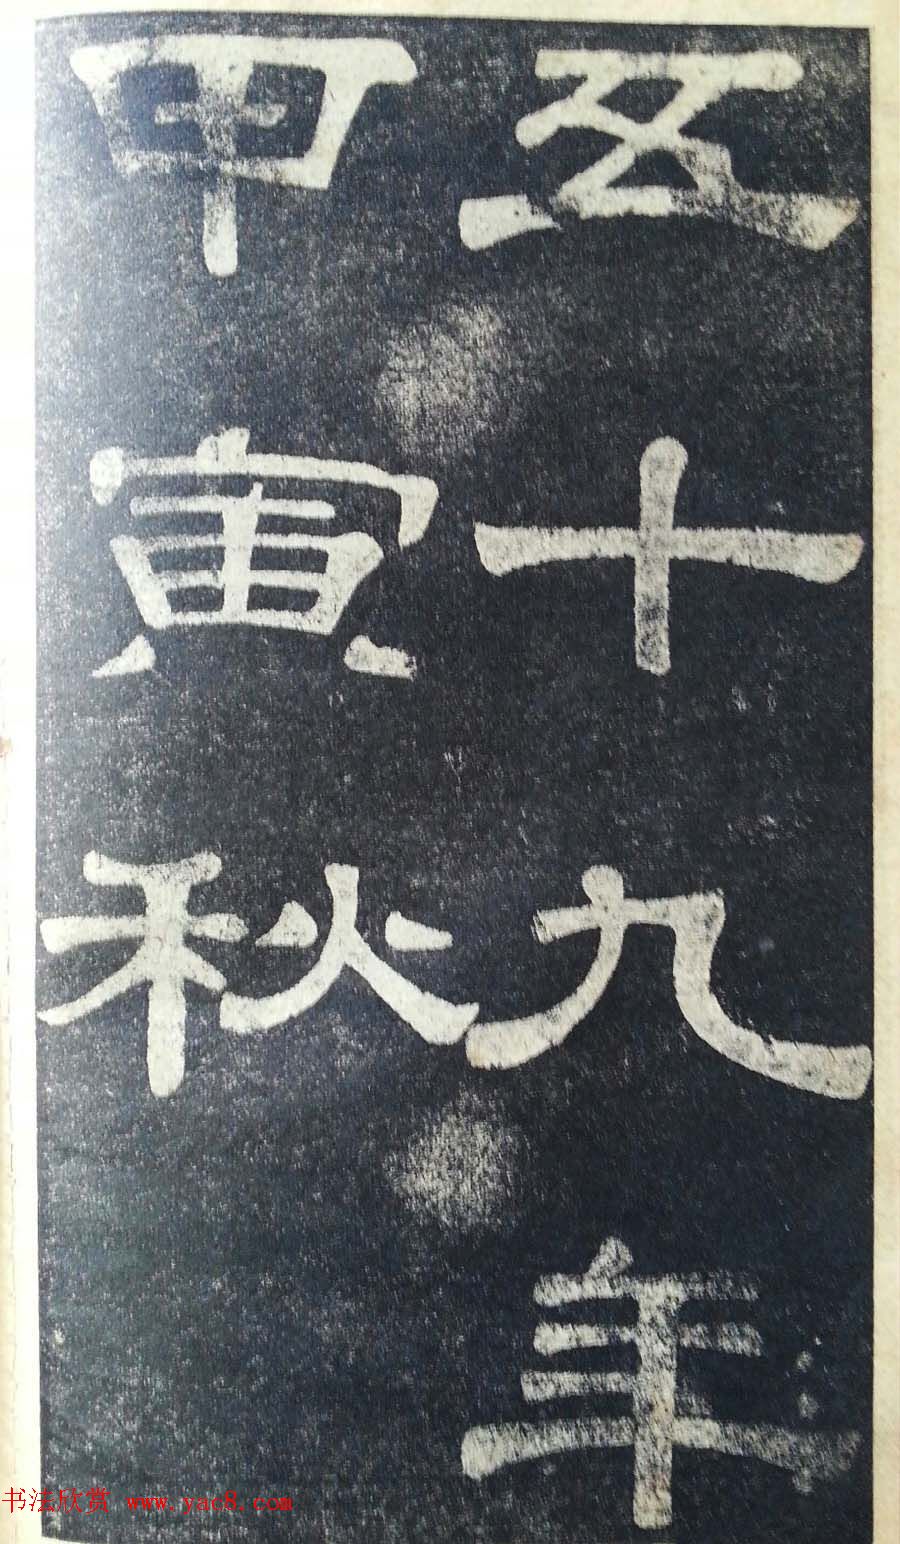 五十九年
甲寅秋
书法欣赏 www.yac8.com